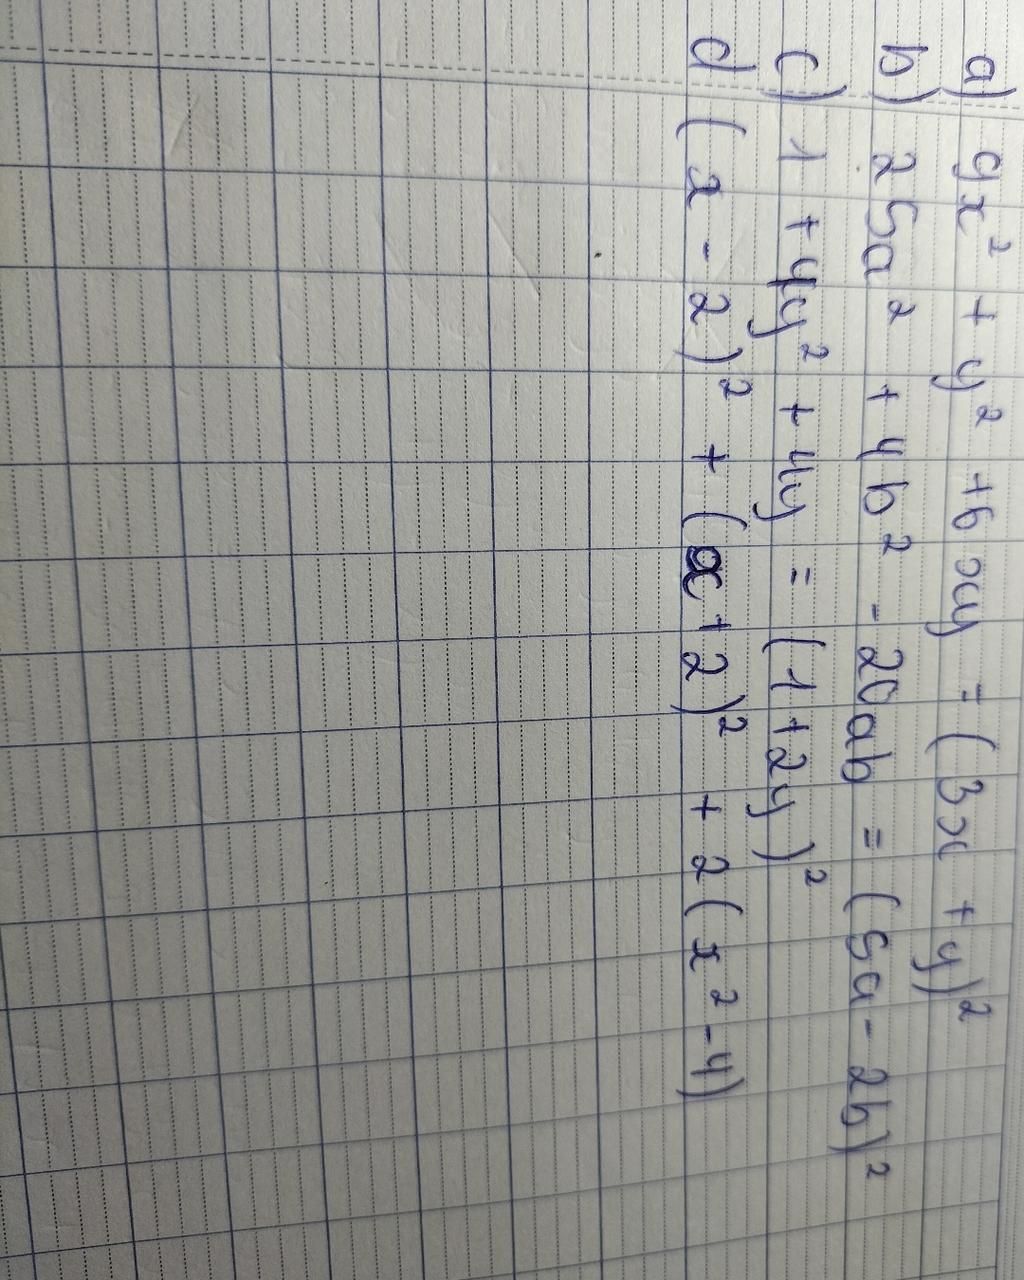 a) 9x² + y² + 6xy = (3x + y)²
b) 25a² + 4b² - 20ab = (5a - 2b)²
c) 1 + 4y² + 4y = (1 + 2y)²
d) (x - 2)² + (x + 2)² + 2(x² - 4)